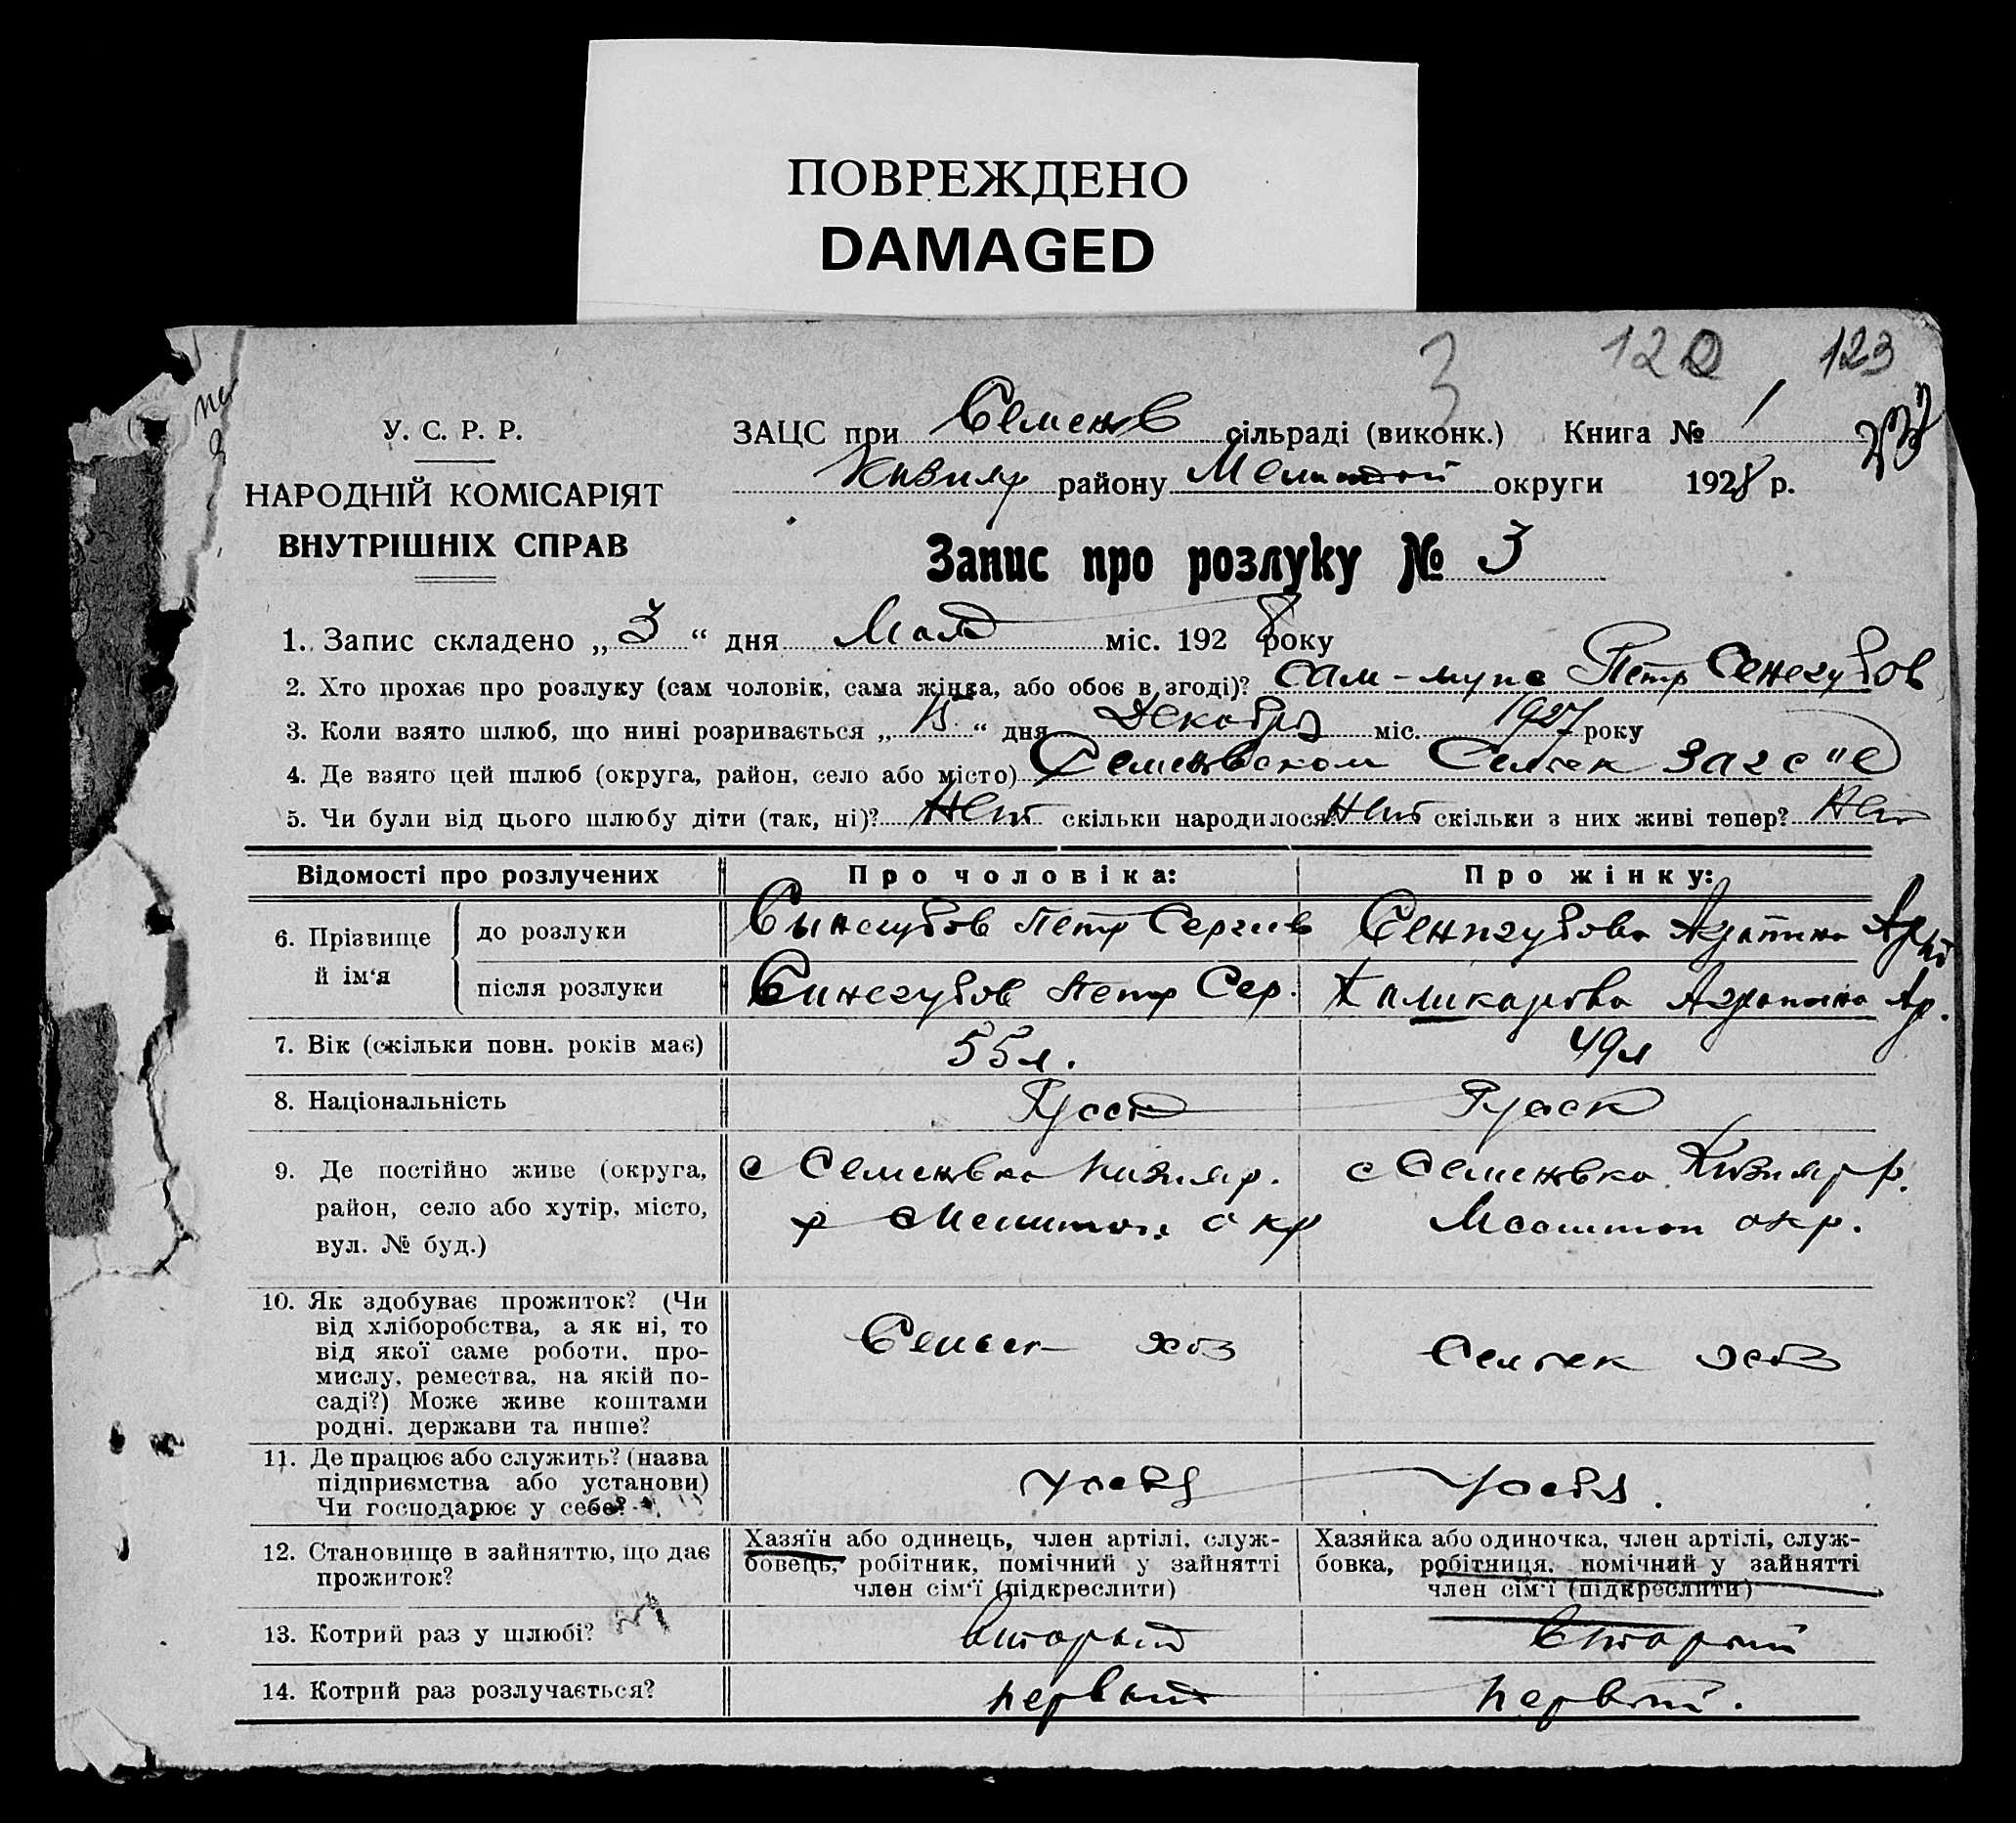 ПОВРЕЖДЕНО
DAMAGED
3 122 123
У. С. Р. Р.
НАРОДНІЙ КОМІСАРІЯТ
ВНУТРІШНІХ СПРАВ
ЗАЦС при Семенов сільраді (виконк.) Книга № 1
району округи 1928 р.
Запис про розлуку № 3
1. Запис складено „ 3 “ дня Мая міс. 1928 року
2. Хто прохає про розлуку (сам чоловік, сама жінка, або обоє в згоді)? сам - Петр Сенегубов
3. Коли взято шлюб, що нині розривається „ “ дня Декабря міс. 1927 року
4. Де взято цей шлюб (округа, район, село або місто) Семеновском Сельск загсе
5. Чи були від цього шлюбу діти (так, ні)? Нет скільки народилося Нет скільки з них живі тепер? Нет
Відомості про розлучених Про чоловіка: Про жінку:
6. Прізвище й ім‘я
до розлуки Сынегубов Петр Сергеев Сенигубова Агапина
після розлуки Синегубов Петр Сер. Агапина Ар.
7. Вік (скільки повн. років має) 55 л. 49 л
8. Національність Русск Русск
9. Де постійно живе (округа, район, село або хутір, місто, вул. № буд.)
с Семеновка Кизияр. с Семеновка Кизияр р.
р Мелитоп. окр Мелитоп окр.
10. Як здобуває прожиток? (Чи
від хліборобства, а як ні, то
від якої саме роботи, про-
мислу, ремества, на якій по-
саді?) Може живе коштами
родні, держави та инше?
Сельск хоз Сельск хоз
11. Де працює або служить? (назва
підприємства або установи)
Чи господарює у себе?
у себя у себя.
12. Становище в зайняттю, що дає
прожиток?
Хазяїн або одинець, член артілі, служ-
бовець, робітник, помічний у зайнятті
член сім‘ї (підкреслити)
Хазяйка або одиночка, член артілі, служ-
бовка, робітниця, помічний у зайнятті
член сім‘ї (підкреслити)
13. Котрий раз у шлюбі? вторый вторый
14. Котрий раз розлучається? первый первый.